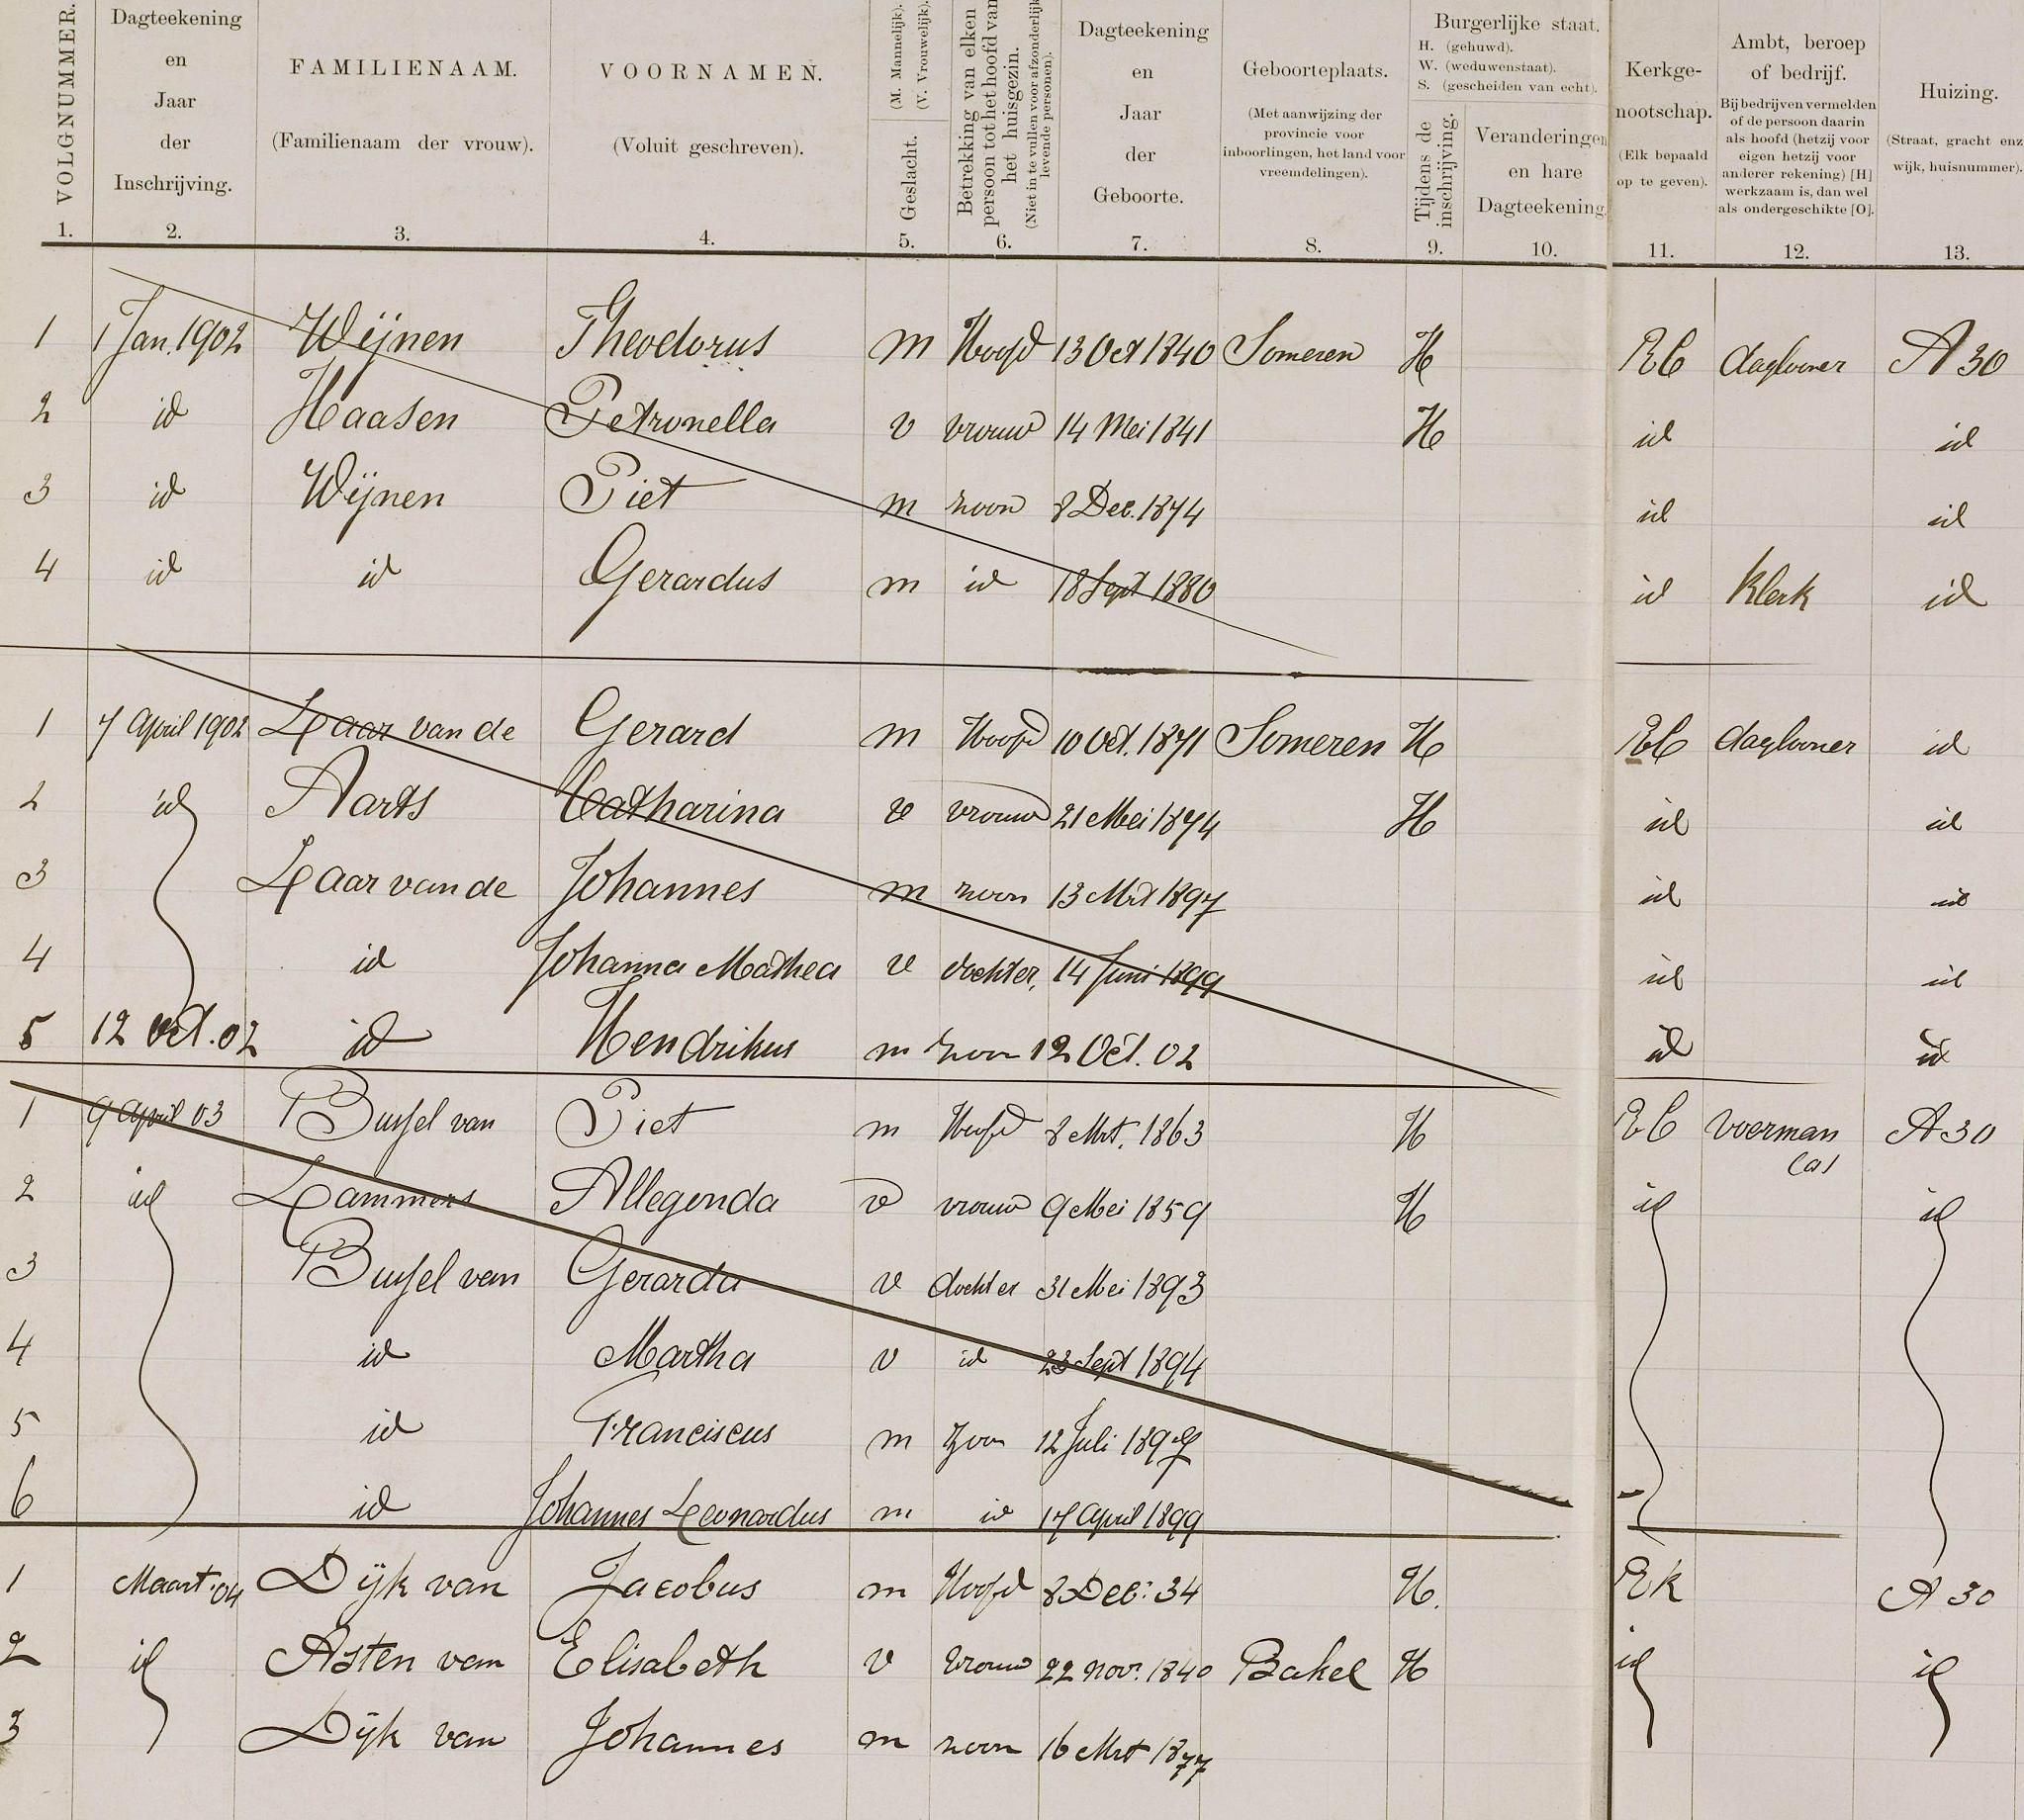 VOLGNUMMER. 1.
Dagteekening en Jaar der Inschrijving. 2.
FAMILIENAAM. (Familienaam der vrouw). 3.
VOORNAMEN. (Voluit geschreven). 4.
Geslacht. (M. Mannelijk). (V. Vrouwelijk). 5.
Betrekking van elken persoon tot het hoofd van het huisgezin. (Niet in te vullen voor afzonderlijk levende personen). 6.
Dagteekening en Jaar der Geboorte. 7.
Geboorteplaats. (Met aanwijzing der provincie voor inboorlingen, het land voor vreemdelingen). 8.
Burgerlijke staat. H. (gehuwd). W. (weduwenstaat). S. (gescheiden van echt).
Tijdens de inschrijving. 9.
Veranderingen en hare Dagteekening 10.
Kerkge-nootschap. (Elk bepaald op te geven). 11.
Ambt, beroep of bedrijf. Bij bedrijven vermelden of de persoon daarin als hoofd (hetzij voor eigen hetzij voor anderer rekening) [H] werkzaam is, dan wel als ondergeschikte [O]. 12.
Huizing. (Straat, gracht enz wijk, huisnummer). 13.
1 1 Jan. 1902 Wijnen Theodorus m Hoofd 13 Oct 1840 Someren H RC daglooner A 30
2 id Haasen Petronella v vrouw 14 Mei 1841 H id id
3 id Wijnen Piet m zoon 8 Dec. 1874 id id
4 id id Gerardus m id 18 Sept 1880 id Klerk id
1 7 April 1902 Laar van de Gerard m Hoofd 10 Oct. 1871 Someren H RC daglooner id
2 id Aarts Catharina v vrouw 21 Mei 1874 H id id
3 Laar van de Johannes m zoon 13 Mrt 1897 id id
4 id Johanna Mathea v dochter, 14 Juni 1899 id id
5 12 Oct. 02 id Hendrikus m zoon 12 Oct. 02 id id
1 9 April 03 Bussel van Piet m Hoofd 8 Mrt. 1863 H RC voerman A 30
2 id Lammers Allegonda v vrouw 9 Mei 1859 H id id
3 Bussel van Gerarda v dochter 31 Mei 1893
4 id Martha v id 23 Sept 1894
5 id Franciscus m zoon 12 Juli 1897
6 id Johannes Leonardus m id 17 April 1899
1 Maart '04 Dijk van Jacobus m Hoofd 8 Dec: 34 H. RK A 30
2 id Asten van Elisabeth v vrouw 22 nov. 1840 Bakel H id id
3 Dijk van Johannes m zoon 16 Mrt 1877